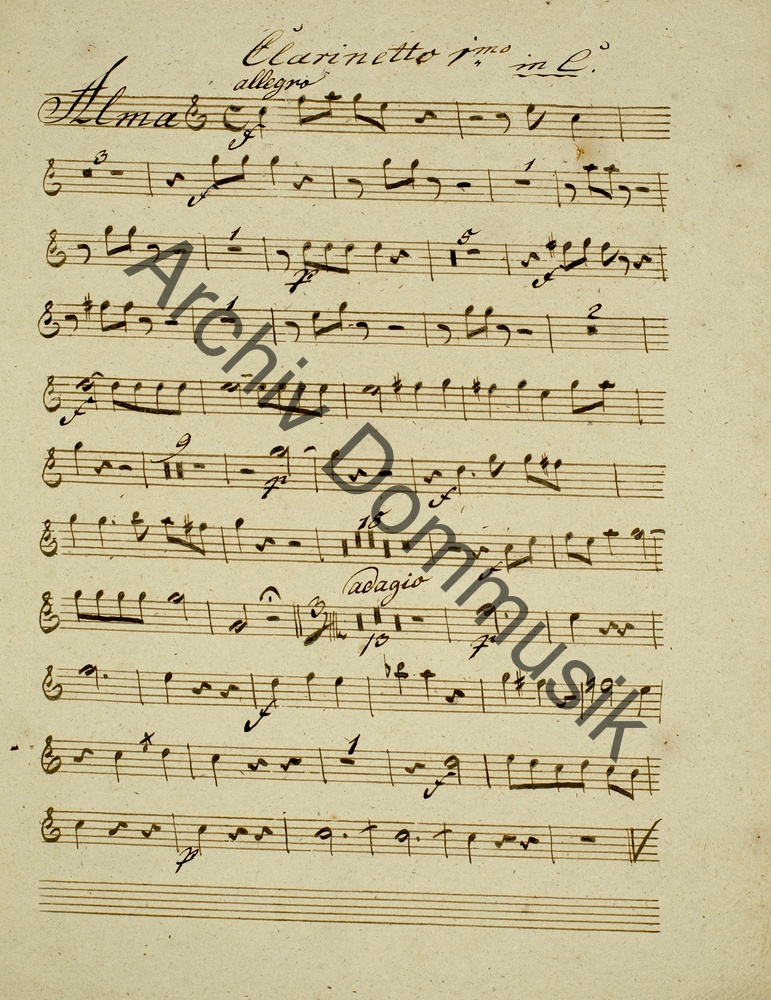 Clarinetto 1mo in C.
allegro
Alma
f
3
f
1
1
p
5
f
1
2
f
9
p
f
18
f
adagio
3
13
p
f
1
f
p
Archiv Dommusik